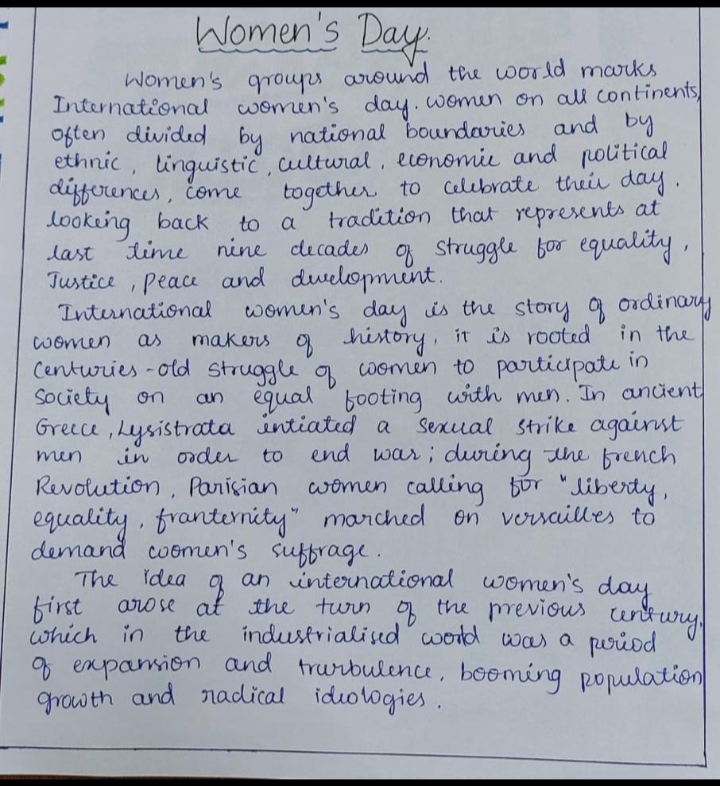 Women's Day.
Women's groups around the world marks
International women's day. women on all continents,
often divided by national boundaries and by
ethnic, linguistic, cultural, economic and political
differences, come together to celebrate their day.
looking back to a tradition that represents at
last time nine decades of struggle for equality,
Justice, peace and duvelopment.
International women's day is the story of ordinary
women as makers of history, it is rooted in the
Centuries-old struggle of women to participate in
Society on an equal footing with men. In ancient
Greece, Lysistrata intiated a sexual strike against
men in order to end war; during the french
Revolution, Parisian women calling for "liberty,
equality, franternity" marched on versailles to
demand women's suffrage.
The idea of an international women's day
first arose at the turn of the previous century,
which in the industrialised world was a period
of expansion and trurbulence, booming population
growth and radical idiologies.